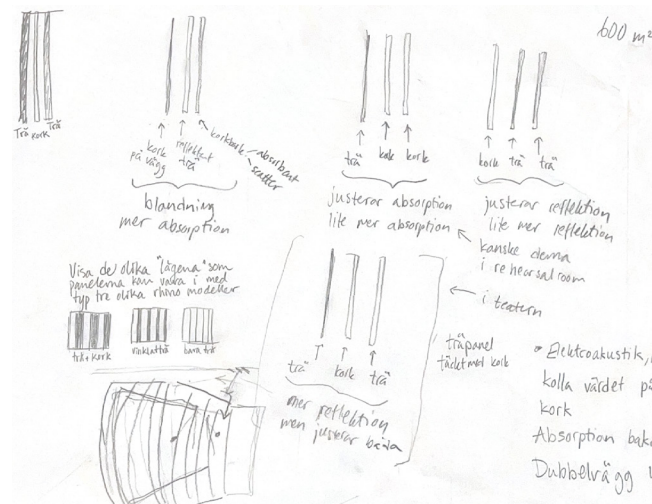 600 m²
Trä kork Trä
kork
på vägg
reflekt
trä
absorbant
scatter
blandning
mer absorption
trä kork kork
justerar absorption
lite mer absorption
kork trä trä
justerar reflektion
lite mer reflektion
kanske denna
i rehearsal room
Visa de olika "lägena" som
panelerna kan vara i med
typ tre olika rhino modeller
trä + kork
vinklat trä
bara trä
i teatern
trä kork trä
mer reflektion
men justerar båda
träpanel
täckt med kork
• Elektroakustik,
kolla värdet på
kork
Absorption
Dubbelvägg